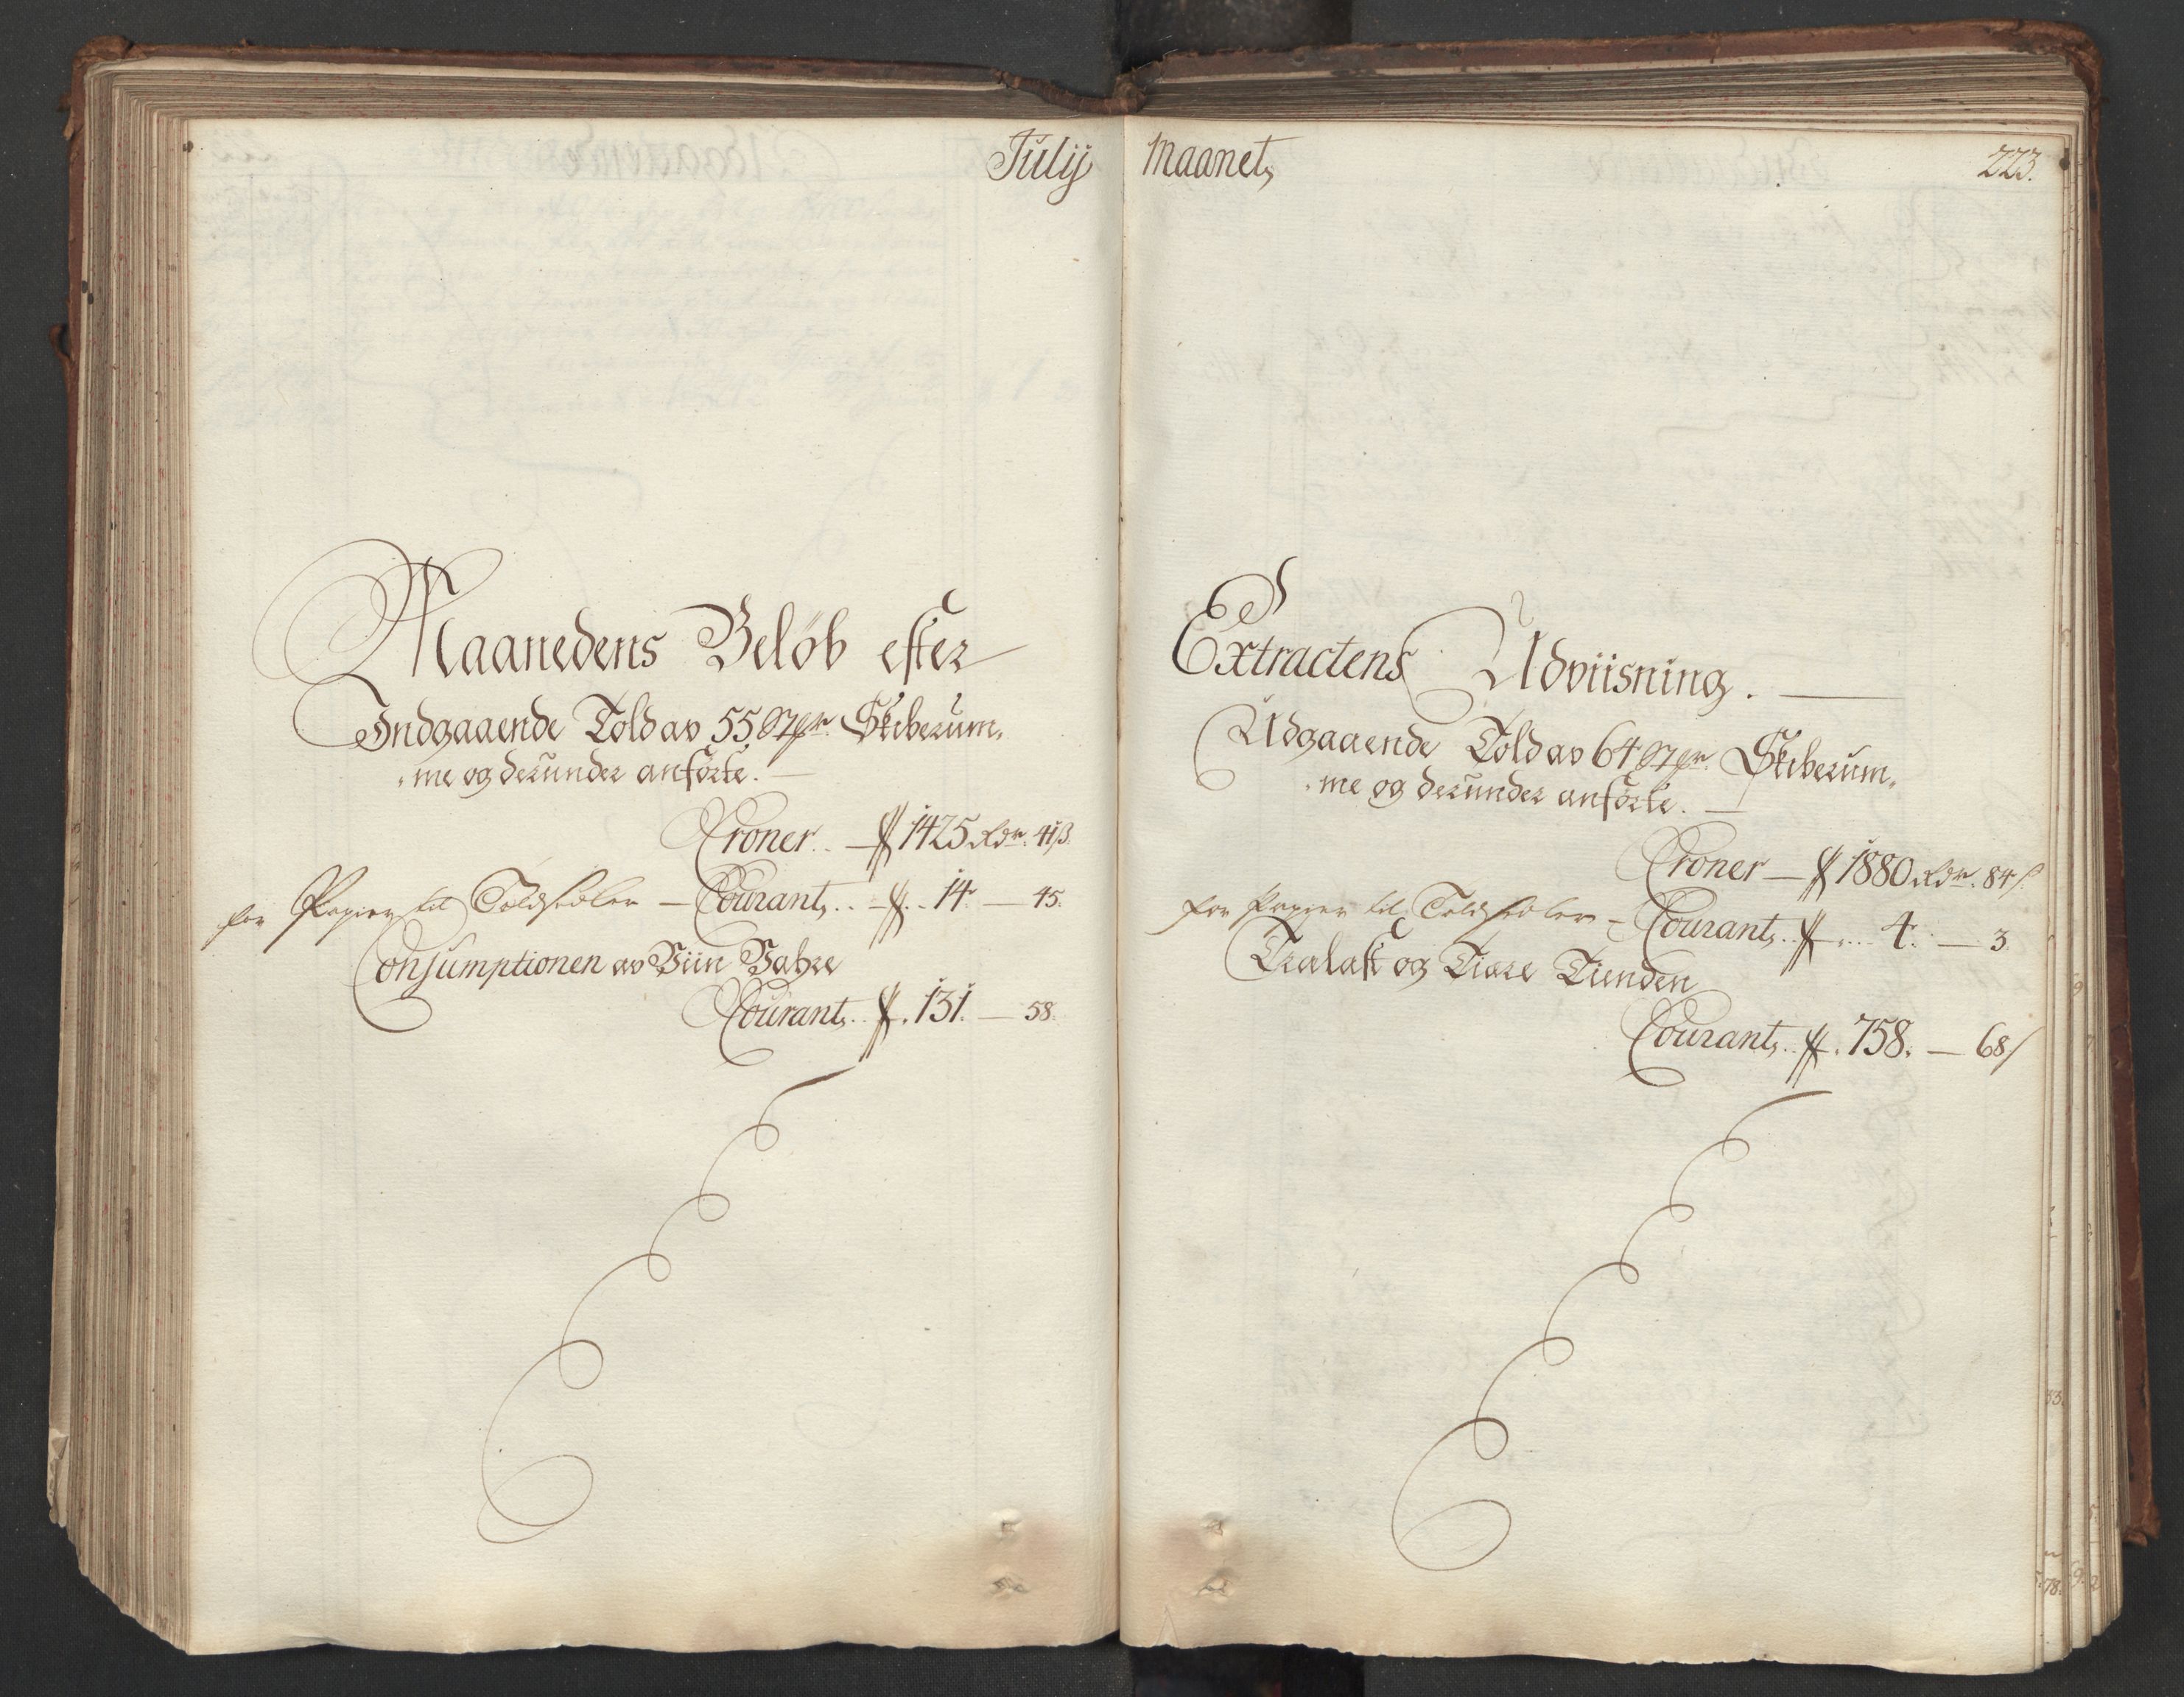 Julij
Maanedens Beløb efter
Indgaaende Told av 55 Skiberum,
me og derunder anförte. —
Croner .. — 1425 Rdr. 41 ß.
for Papier til Toldsedler — Courant, .. — 14. — 45.
Consumptionen av Viin Vahre
Courant .. 131. — 58.
Maanet,
223.
Extractens Udviisning. —
Udgaaende Told av 64 Skiberum,
me og derunder anförte. —
Croner — 1880 Rdr. 84 ß.
for Papier til Toldsedler — Courant, .. 4. — 3.
Tralast og Tiære Tienden
Courant, .. 758. — 68 ß